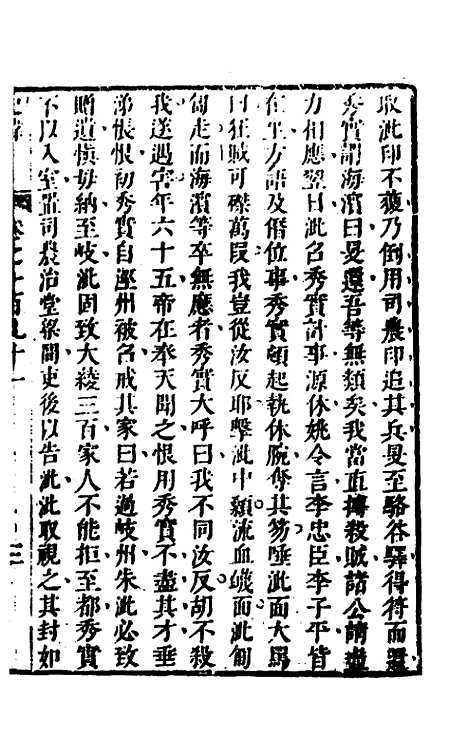 取泚印不獲乃倒用司農印追其兵旻至駱谷驛得符而還
秀實謂海濱曰旻還吾等無類矣我當直摶殺賊諸公請
力相應翌日泚召秀實計事源休姚令言李忠臣李子平皆
在坐方語及僭位事秀實頓起執休腕奪其笏唾泚面大罵
曰狂賊可磔萬段我豈從汝反耶擊泚中顙流血衊面泚匍
匐走而海濱等卒無應者秀實大呼曰我不同汝反胡不殺
我遂遇害年六十五帝在奉天聞之恨用秀實不盡其才垂
涕悵恨初秀實自涇州被召戒其家曰若過岐州朱泚必致
贈遺愼毋納至岐泚固致大綾三百家人不能拒至都秀實
不以入室置司農治堂梁間吏後以告泚泚取視之其封如
卷七百九十一